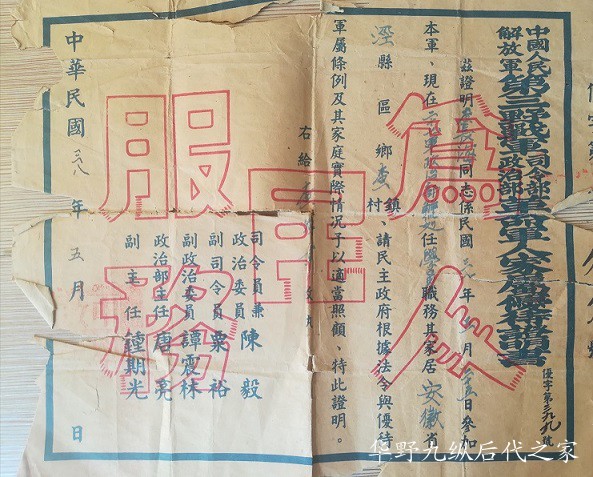 中國人民解放軍第三野戰軍司令部政治部革命軍人家屬優待證明書
優字第三九九號
茲證明 同志係民國三八年 月 日參加
本軍、現在 任 職務其家居安徽省
涇縣 區 鄉 鎮村、請民主政府根據法令與優待
軍屬條例及其家庭實際情況予以適當照顧、特此證明。
右給
司令員兼政治委員 陳毅
副司令員 粟裕
副政治委員 譚震林
政治部主任 唐亮
副主任 鍾期光
中華民國三八年五月 日
為人
民
服務
华野九纵后代之家